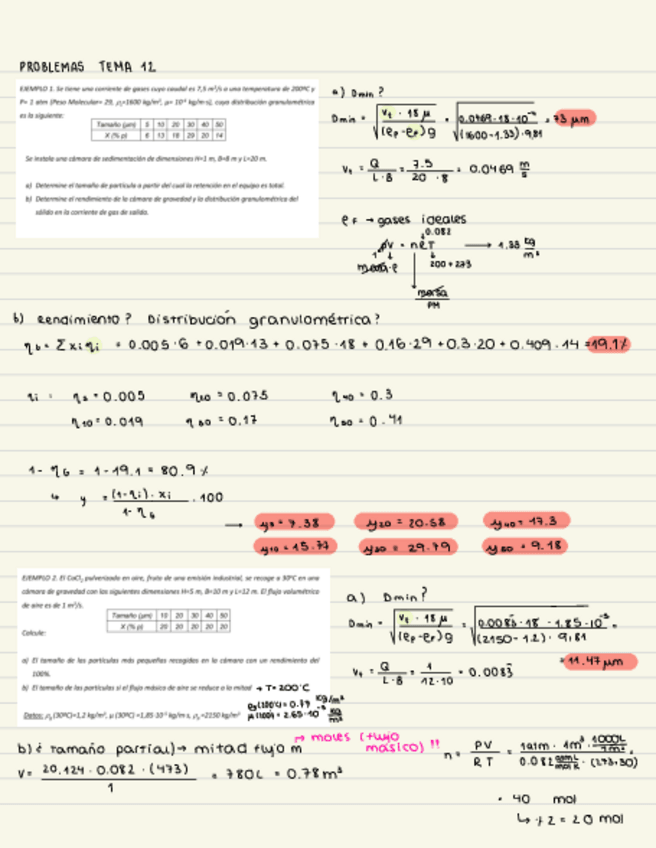 PROBLEMAS TEMA 12
EJEMPLO 1. Se tiene una corriente de gases cuyo caudal es 7,5 m³/s a una temperatura de 200ºC y
P= 1 atm (Peso Molecular= 29, ρₚ=1600 kg/m³, μ= 10⁻⁵ kg/m·s), cuya distribución granulométrica
es la siguiente:
Tamaño (μm) 5 10 20 30 40 50
X (% p) 6 13 18 29 20 14
Se instala una cámara de sedimentación de dimensiones H=1 m, B=8 m y L=20 m.
a) Determine el tamaño de partícula a partir del cual la retención en el equipo es total.
b) Determine el rendimiento de la cámara de gravedad y la distribución granulométrica del
sólido en la corriente de gas de salida.
a) Dmin?
Dmin = √(vt · 18 μ / (ρp-ρF)g) = √(0.0469·18·10⁻⁵ / (1600-1.33)·9.81) = 73 μm
vt = Q / L·B = 7.5 / 20·8 = 0.0469 m/s
ρF → gases ideales
0.082
PV = nRT → 1.33 kg/m³
masa·ρ
200+273
masa / PM
b) Rendimiento? Distribución granulométrica?
ηG = Σ xi ηi = 0.005·6 + 0.019·13 + 0.075·18 + 0.16·29 + 0.3·20 + 0.409·14 = 19.1%
ηi: η5 = 0.005 η20 = 0.075 η40 = 0.3
η10 = 0.019 η30 = 0.17 η50 = 0.41
1- ηG = 1-19.1 = 80.9 %
↳ y = (1-ηi)·xi / 1-ηG · 100
→ y5 = 7.38 y20 = 20.58 y40 = 17.3
y10 = 15.77 y30 = 29.79 y50 = 9.18
EJEMPLO 2. El CaCl₂ pulverizado en aire, fruto de una emisión industrial, se recoge a 30ºC en una
cámara de gravedad con las siguientes dimensiones H=5 m, B=10 m y L=12 m. El flujo volumétrico
de aire es de 1 m³/s.
Tamaño (μm) 10 20 30 40 50
X (% p) 20 20 20 20 20
Calcule:
a) El tamaño de las partículas más pequeñas recogidas en la cámara con un rendimiento del
100%.
b) El tamaño de las partículas si el flujo másico de aire se reduce a la mitad → T=200ºC
Datos: (30ºC)=1,2 kg/m³, μ (30ºC) =1,85·10⁻⁵ kg/m s, ρₚ=2150 kg/m³
(200ºC) = 0.77 kg/m³
μ (200) = 2.65·10⁻⁵
a) Dmin?
Dmin = √(vt · 18 μ / (ρp-ρF)g) = √(0.0083·18·1.85·10⁻⁵ / (2150-1.2)·9.81) =
= 11.47 μm
vt = Q / L·B = 1 / 12·10 = 0.0083
b) ¿ tamaño partial → mitad flujo m → moles (flujo másico) !!
n = PV / RT = 1atm · 1m³ · 1000L/1m³ / 0.082 · (273+30)
V = 20.124 · 0.082 · (473) / 1 = 780L = 0.78 m³
= 40 mol
↳ ÷2 = 20 mol